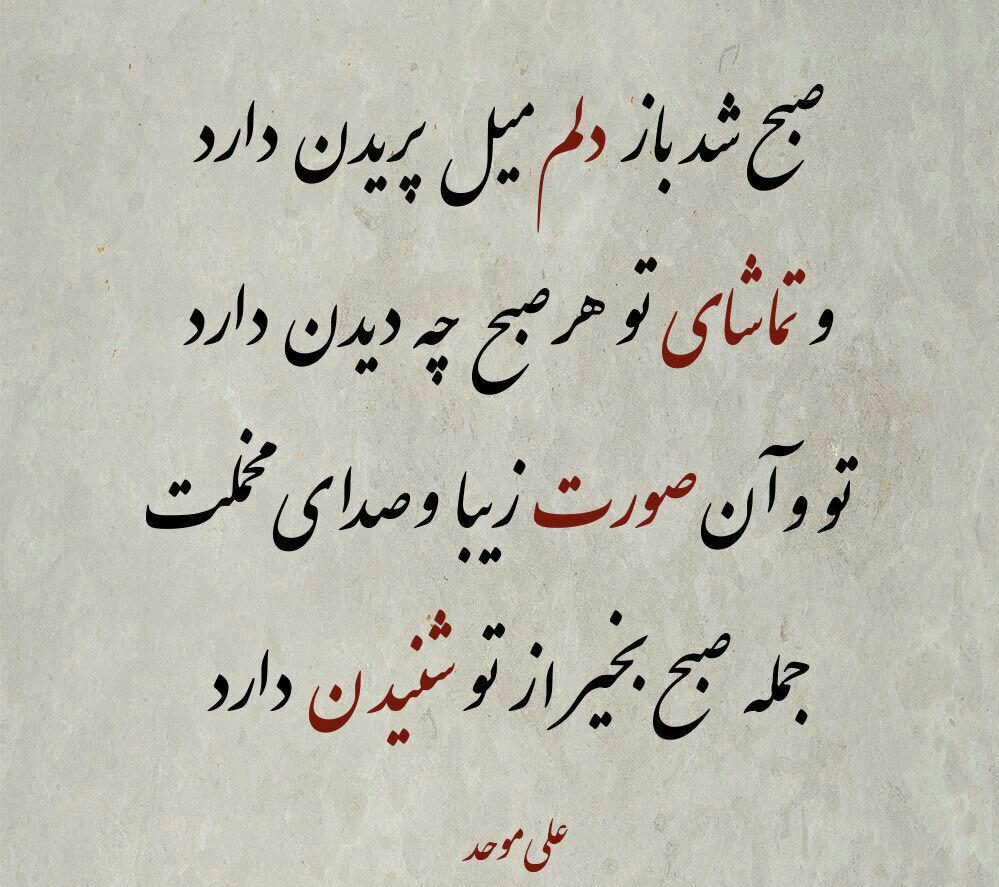 صبح شد باز دلم میل پریدن دارد
و تماشای تو هر صبح چه دیدن دارد
تو و آن صورت زیبا و صدای مخملت
جمله صبح بخیر از تو شنیدن دارد
علی موحد